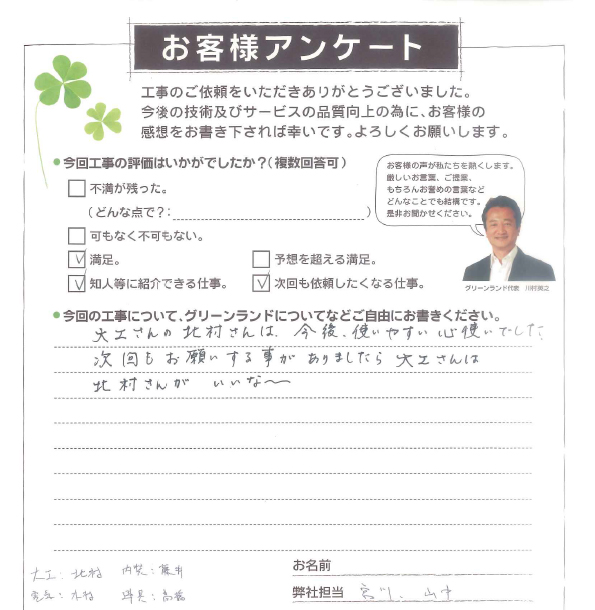 お客様アンケート
工事のご依頼をいただきありがとうございました。
今後の技術及びサービスの品質向上の為に、お客様の
感想をお書き下されば幸いです。よろしくお願いします。
今回工事の評価はいかがでしたか?(複数回答可)
不満が残った。
(どんな点で?: )
可もなく不可もない。
満足。
予想を超える満足。
知人等に紹介できる仕事。
次回も依頼したくなる仕事。
お客様の声が私たちを熱くします。
厳しいお言葉、ご提案、
もちろんお誉めの言葉など
どんなことでも結構です。
是非お聞かせください。
グリーンランド代表 川村英之
今回の工事について、グリーンランドについてなどご自由にお書きください。
大工さんの北村さんは、今後、使いやすい心使いでした
次回もお願いする事がありましたら大工さんは
北村さんが いいな〜
大工:北村 内装:藤井
電気:木村 建具:高橋
お名前
弊社担当 宮川、山中